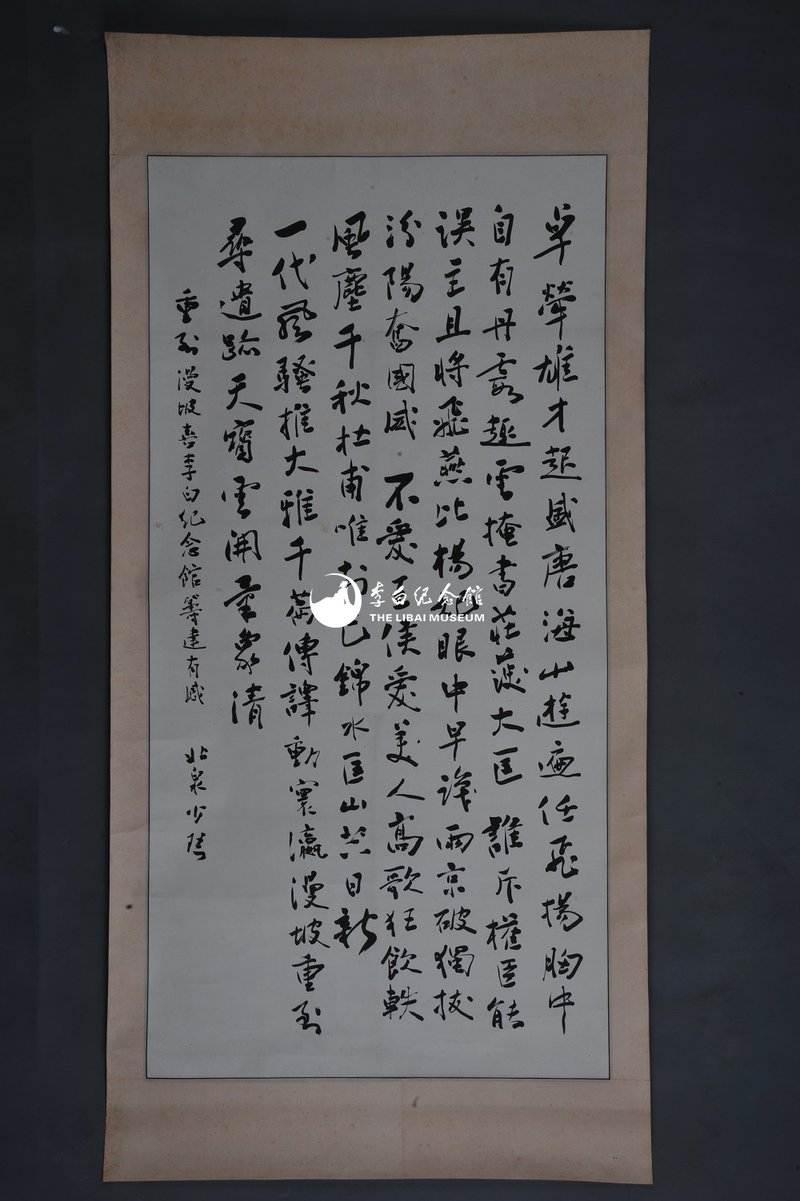 卓犖雄才起盛唐海山遊遍任飛揚胸中
自有丹霞趣雲掩書莊蔽大匡 誰斥權臣能
误主且將飛燕比楊妃眼中早識兩京破獨拔
汾陽奮國威 不愛百侯愛美人高歌狂飲軼
風塵千秋杜甫唯知己錦水匡山共日新
一代風騷推大雅千蒭傳譯動寰瀛漫坡重到
尋遺跡天寶雲開氣象清
重到漫坡喜李白纪念館籌建有感 北泉少
李白纪念館
THE LIBAI MUSEUM